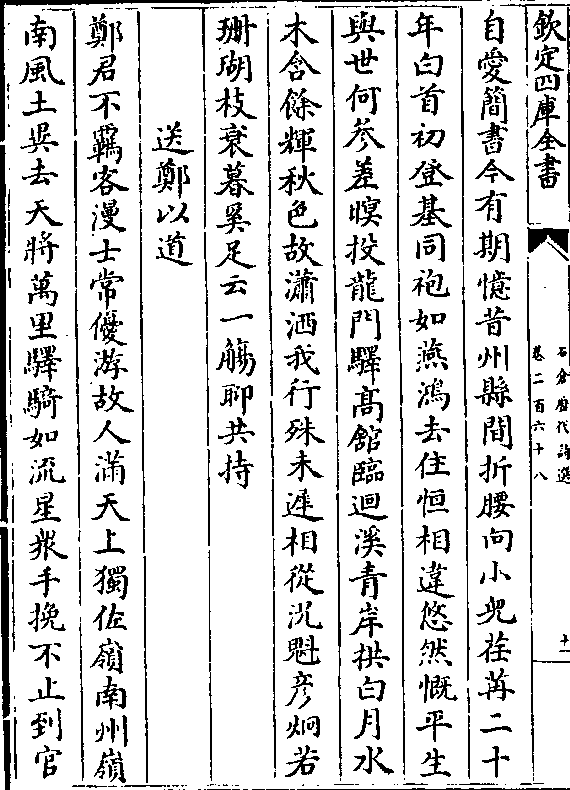 欽定四庫全書
石倉歷代詩選
卷二百六十八
十一
自愛簡書今有期憶昔州縣間折腰向小兒荏苒二十
年白首初登基同袍如燕鴻去住恒相違悠然慨平生
與世何參差暝投龍門驛髙館臨迴溪青岸拱白月水
木含餘輝秋色故瀟洒我行殊未遲相從沉魁彥炯若
珊瑚枝衰暮奚足云一觴聊共持
送鄭以道
鄭君不羈客漫士常優游故人滿天上獨佐嶺南州嶺
南風土異去天將萬里驛騎如流星衆手挽不止到官